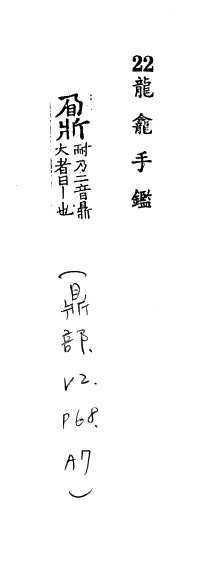 22龍龕手鑑
鼐 耐乃二音鼎
大者曰｜也
(鼎部.V2.P68.A7)